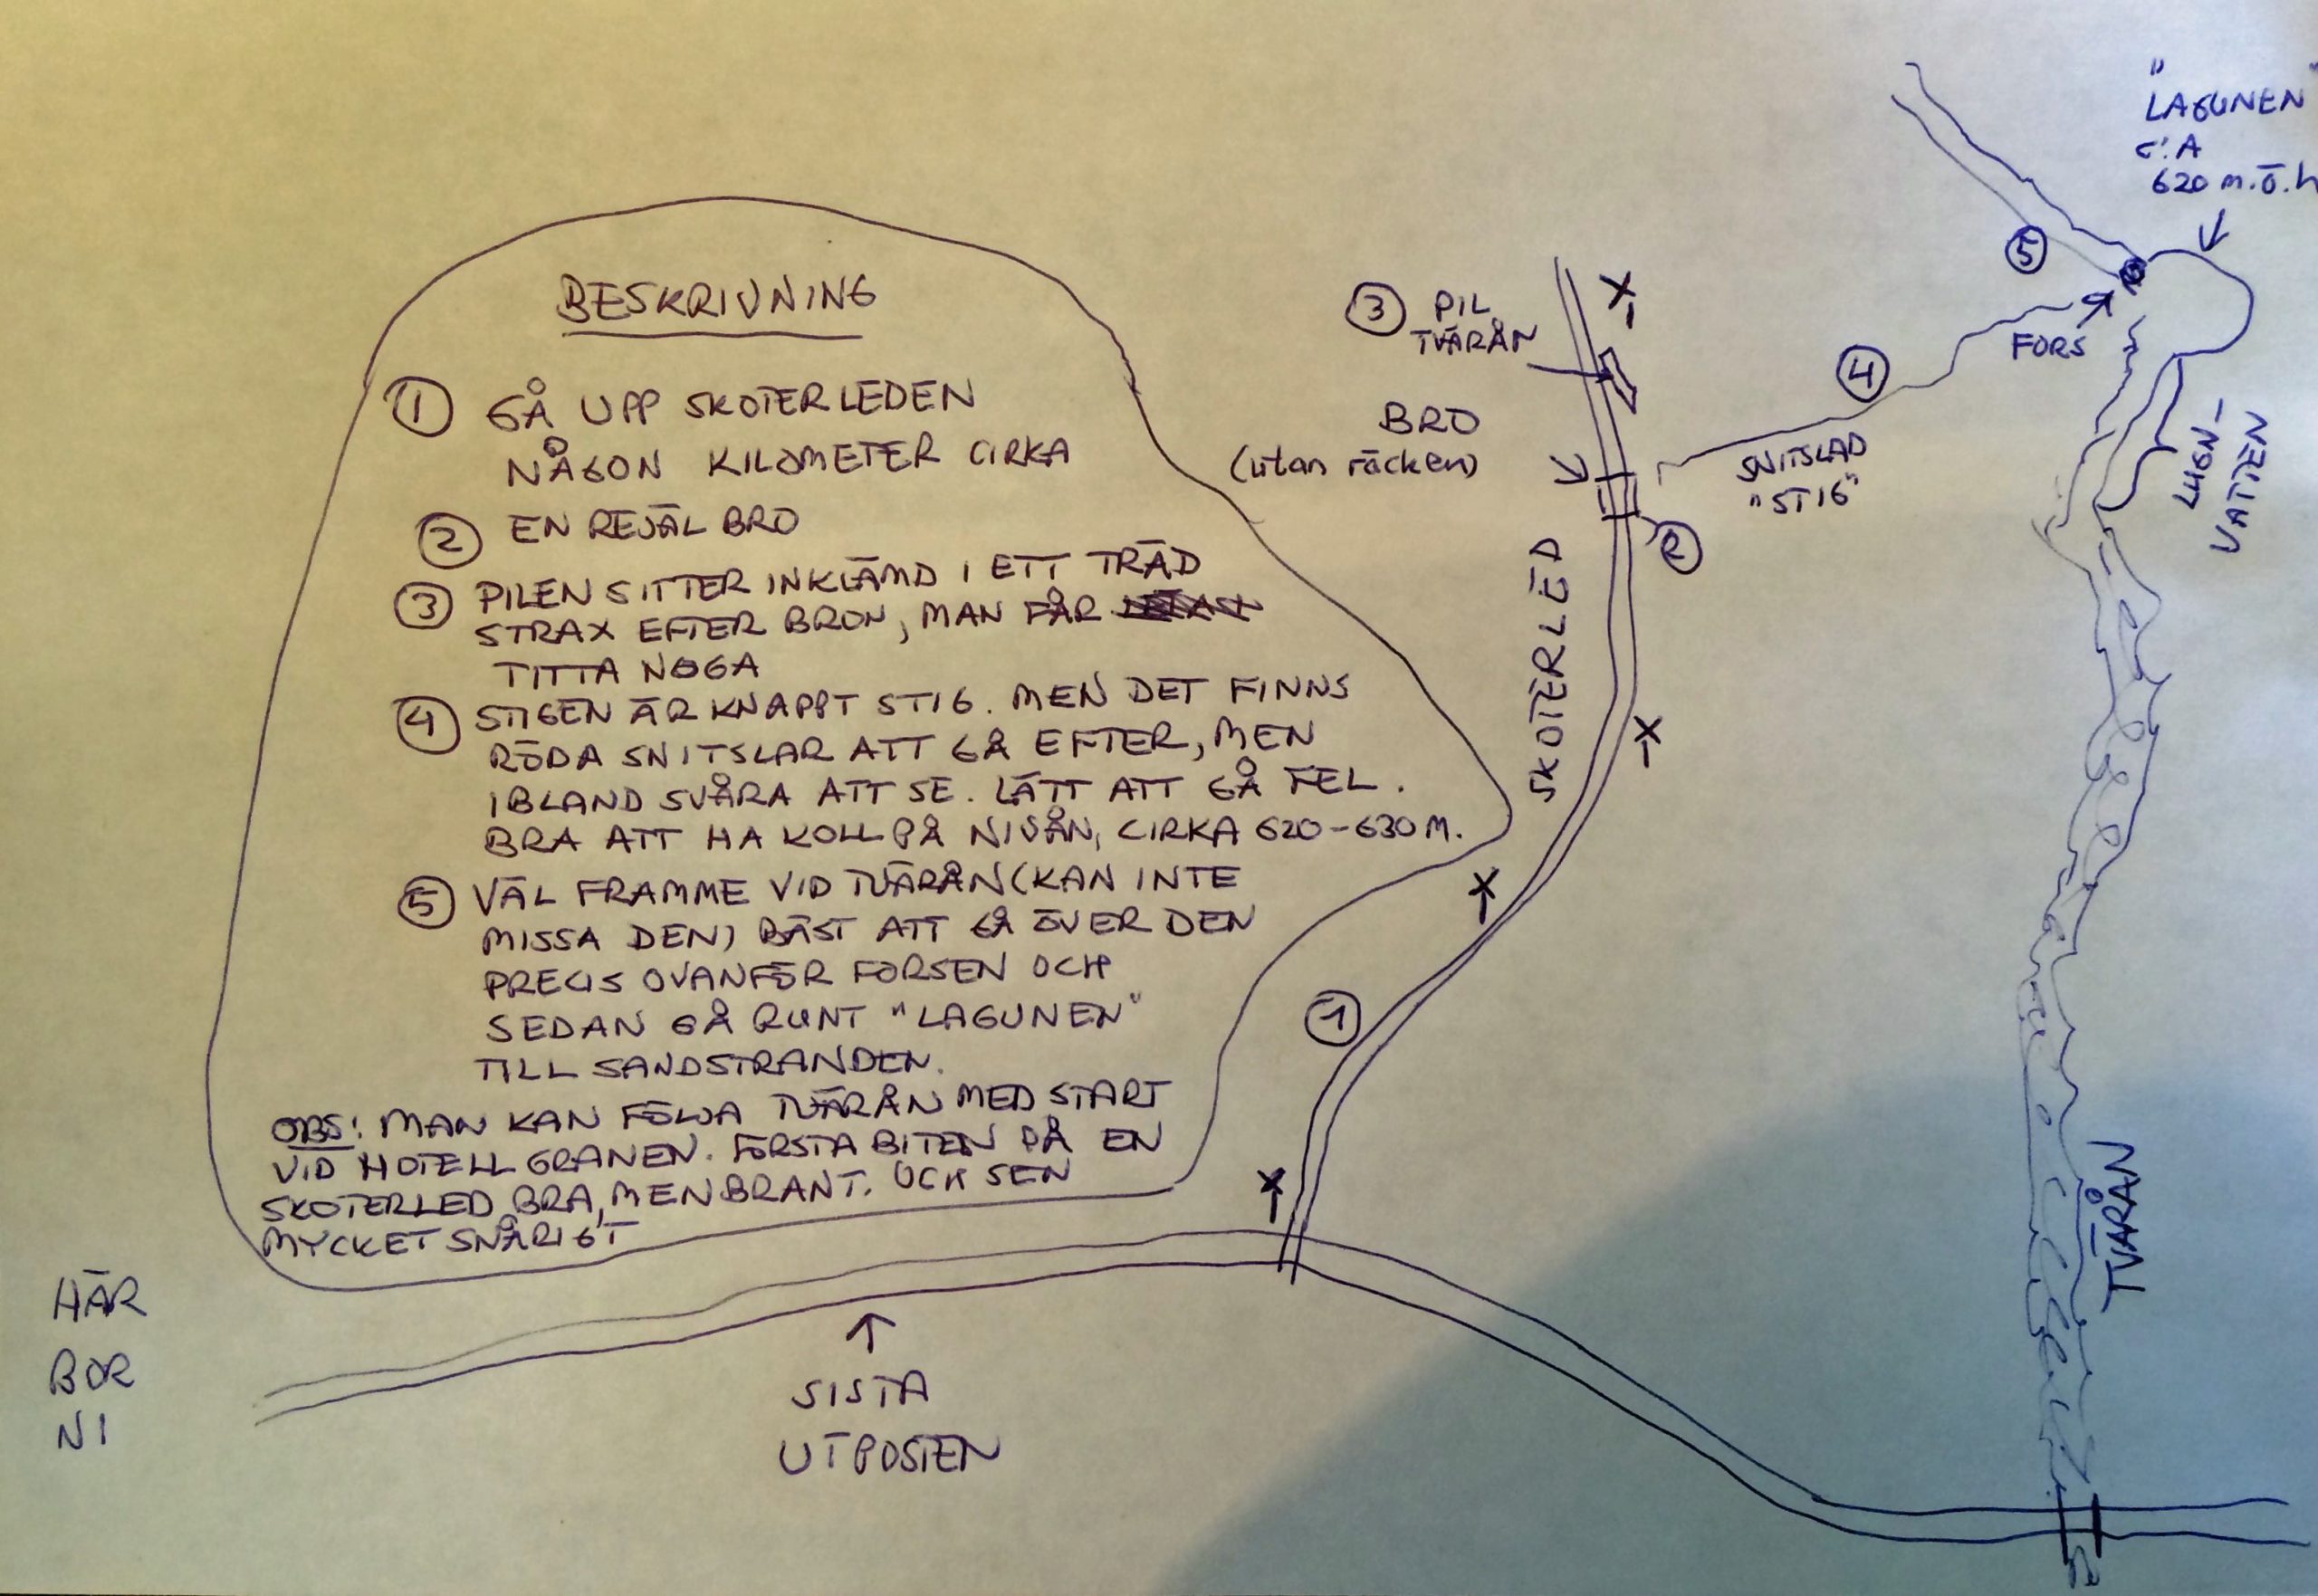 BESKRIVNING
① GÅ UPP SKOTERLEDEN
NÅGON KILOMETER CIRKA
② EN REJÄL BRO
③ PILEN SITTER INKLÄMD I ETT TRÄD
STRAX EFTER BRON, MAN FÅR
TITTA NOGA
④ STIGEN ÄR KNAPPT STIG. MEN DET FINNS
RÖDA SNITSLAR ATT GÅ EFTER, MEN
IBLAND SVÅRA ATT SE. LÄTT ATT GÅ FEL.
BRA ATT HA KOLL PÅ NIVÅN, CIRKA 620-630 M.
⑤ VÄL FRAMME VID TVÄRÅN (KAN INTE
MISSA DEN) BÄST ATT GÅ ÖVER DEN
PRECIS OVANFÖR FORSEN OCH
SEDAN GÅ RUNT "LAGUNEN"
TILL SANDSTRANDEN.
OBS: MAN KAN FÖLJA TVÄRÅN MED START
VID HOTELL GRANEN. FÖRSTA BITEN PÅ EN
SKOTERLED BRA, MEN BRANT. OCH SEN
MYCKET SNÅRIGT
HÄR
BOR
NI
SISTA
UTPOSTEN
①
SKOTERLED
③ PIL
TVÄRÅN
BRO
(utan räcken)
②
SNITSLAD
"STIG"
④
FORS
⑤
"LAGUNEN"
C:A
620 m.ö.h
LUGN-
VATTEN
TVÄRÅN